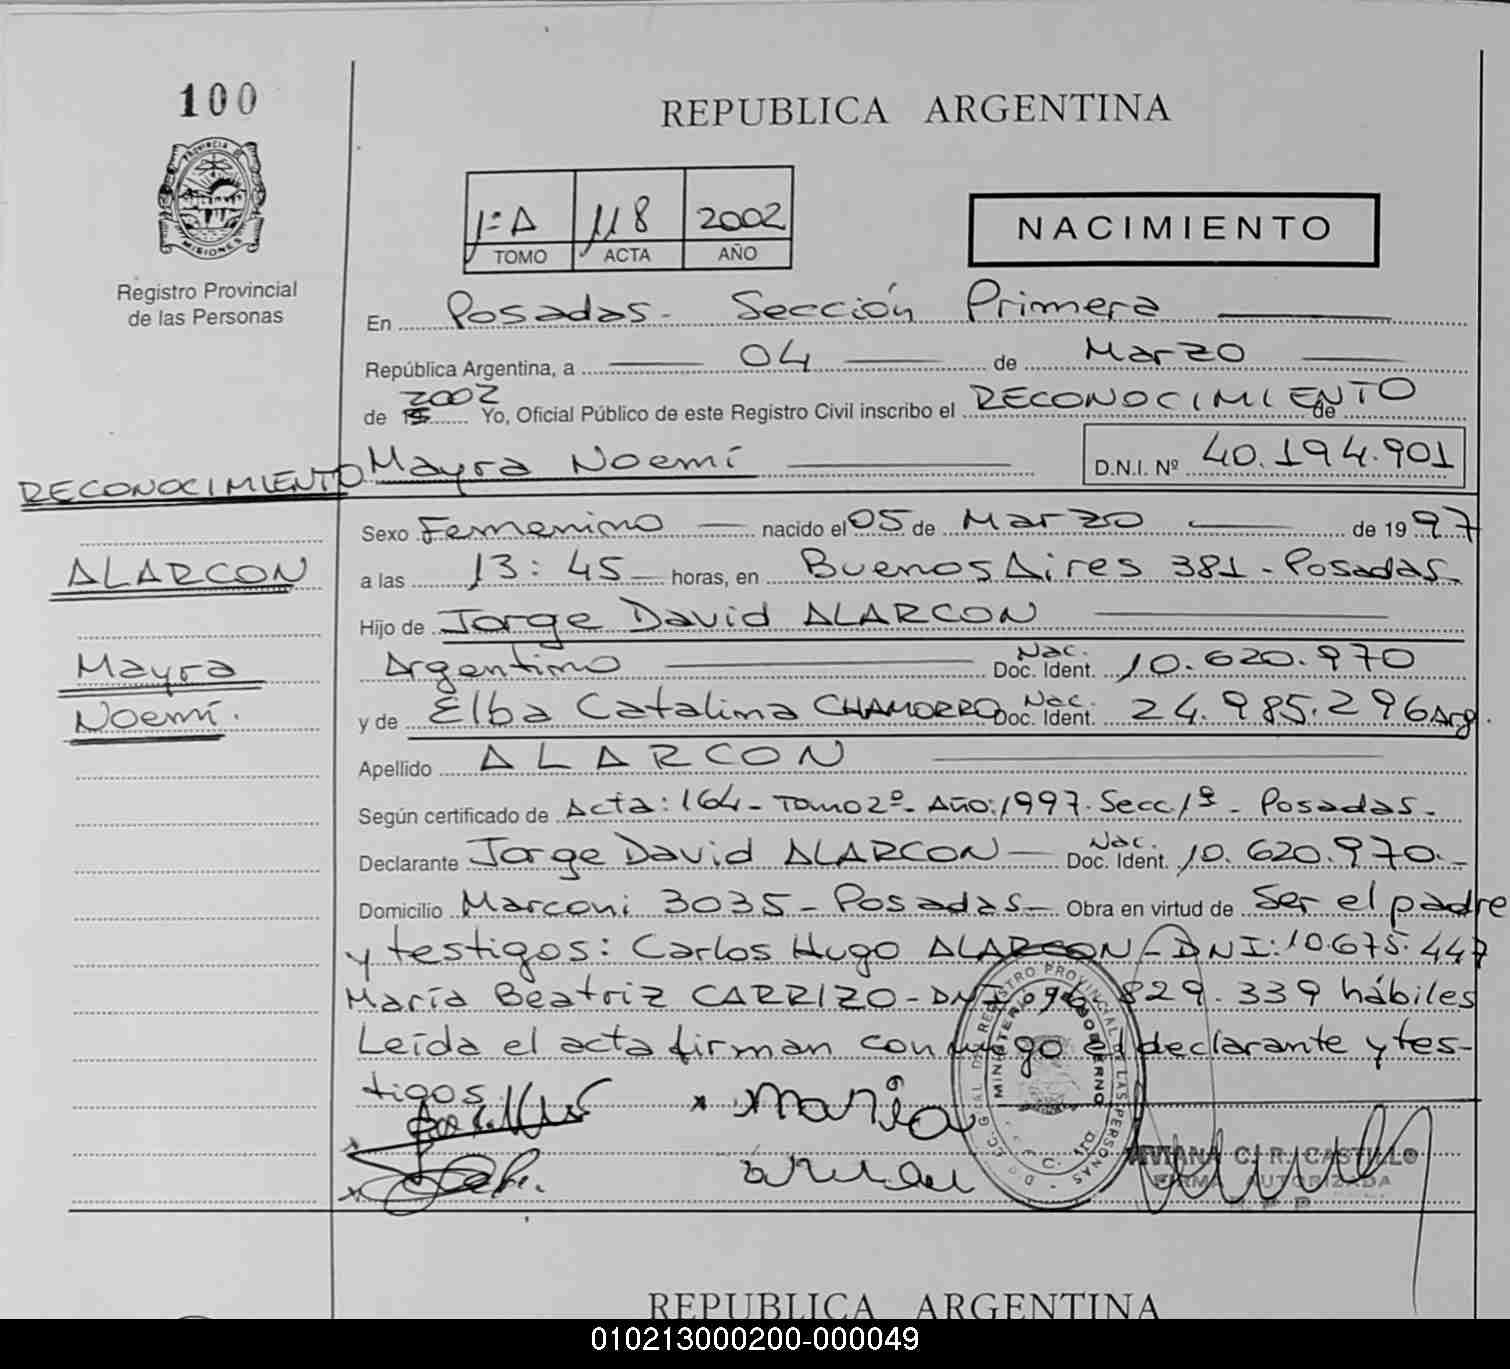 100
REPUBLICA ARGENTINA
PROVINCIA
MISIONES
1ºA 118 2002
TOMO ACTA AÑO
NACIMIENTO
Registro Provincial
de las Personas
En Posadas - Sección Primera
República Argentina, a 04 de Marzo
de 2002 Yo, Oficial Público de este Registro Civil inscribo el RECONOCIMIENTO de
Mayra Noemí D.N.I. Nº 40.194.901
RECONOCIMIENTO
ALARCON
Mayra
Noemí.
Sexo Femenino nacido el 05 de Marzo de 1997
a las 13:45 horas, en Buenos Aires 381 - Posadas
Hijo de Jorge David ALARCON
Argentino Nac. Doc. Ident. 10.620.970
y de Elba Catalina CHAMORRO Nac. Doc. Ident. 24.985.296 Arg.
Apellido ALARCON
Según certificado de Acta: 164 - Tomo 2º - Año: 1997. Secc 1ª - Posadas -
Declarante Jorge David ALARCON Nac. Doc. Ident. 10.620.970.-
Domicilio Marconi 3035 - Posadas - Obra en virtud de Ser el padre
y testigos: Carlos Hugo ALARCON - DNI: 10.675.447
María Beatriz CARRIZO - DNI 829.339 hábiles
Leída el acta firman conmigo el declarante y tes-
tigos
Maria
REGISTRO PROVINCIAL DE LAS PERSONAS
MINISTERIO GOBIERNO
VIVIANA C. R. CASTILLO
FIRMA AUTORIZADA
REPUBLICA ARGENTINA
010213000200-000049